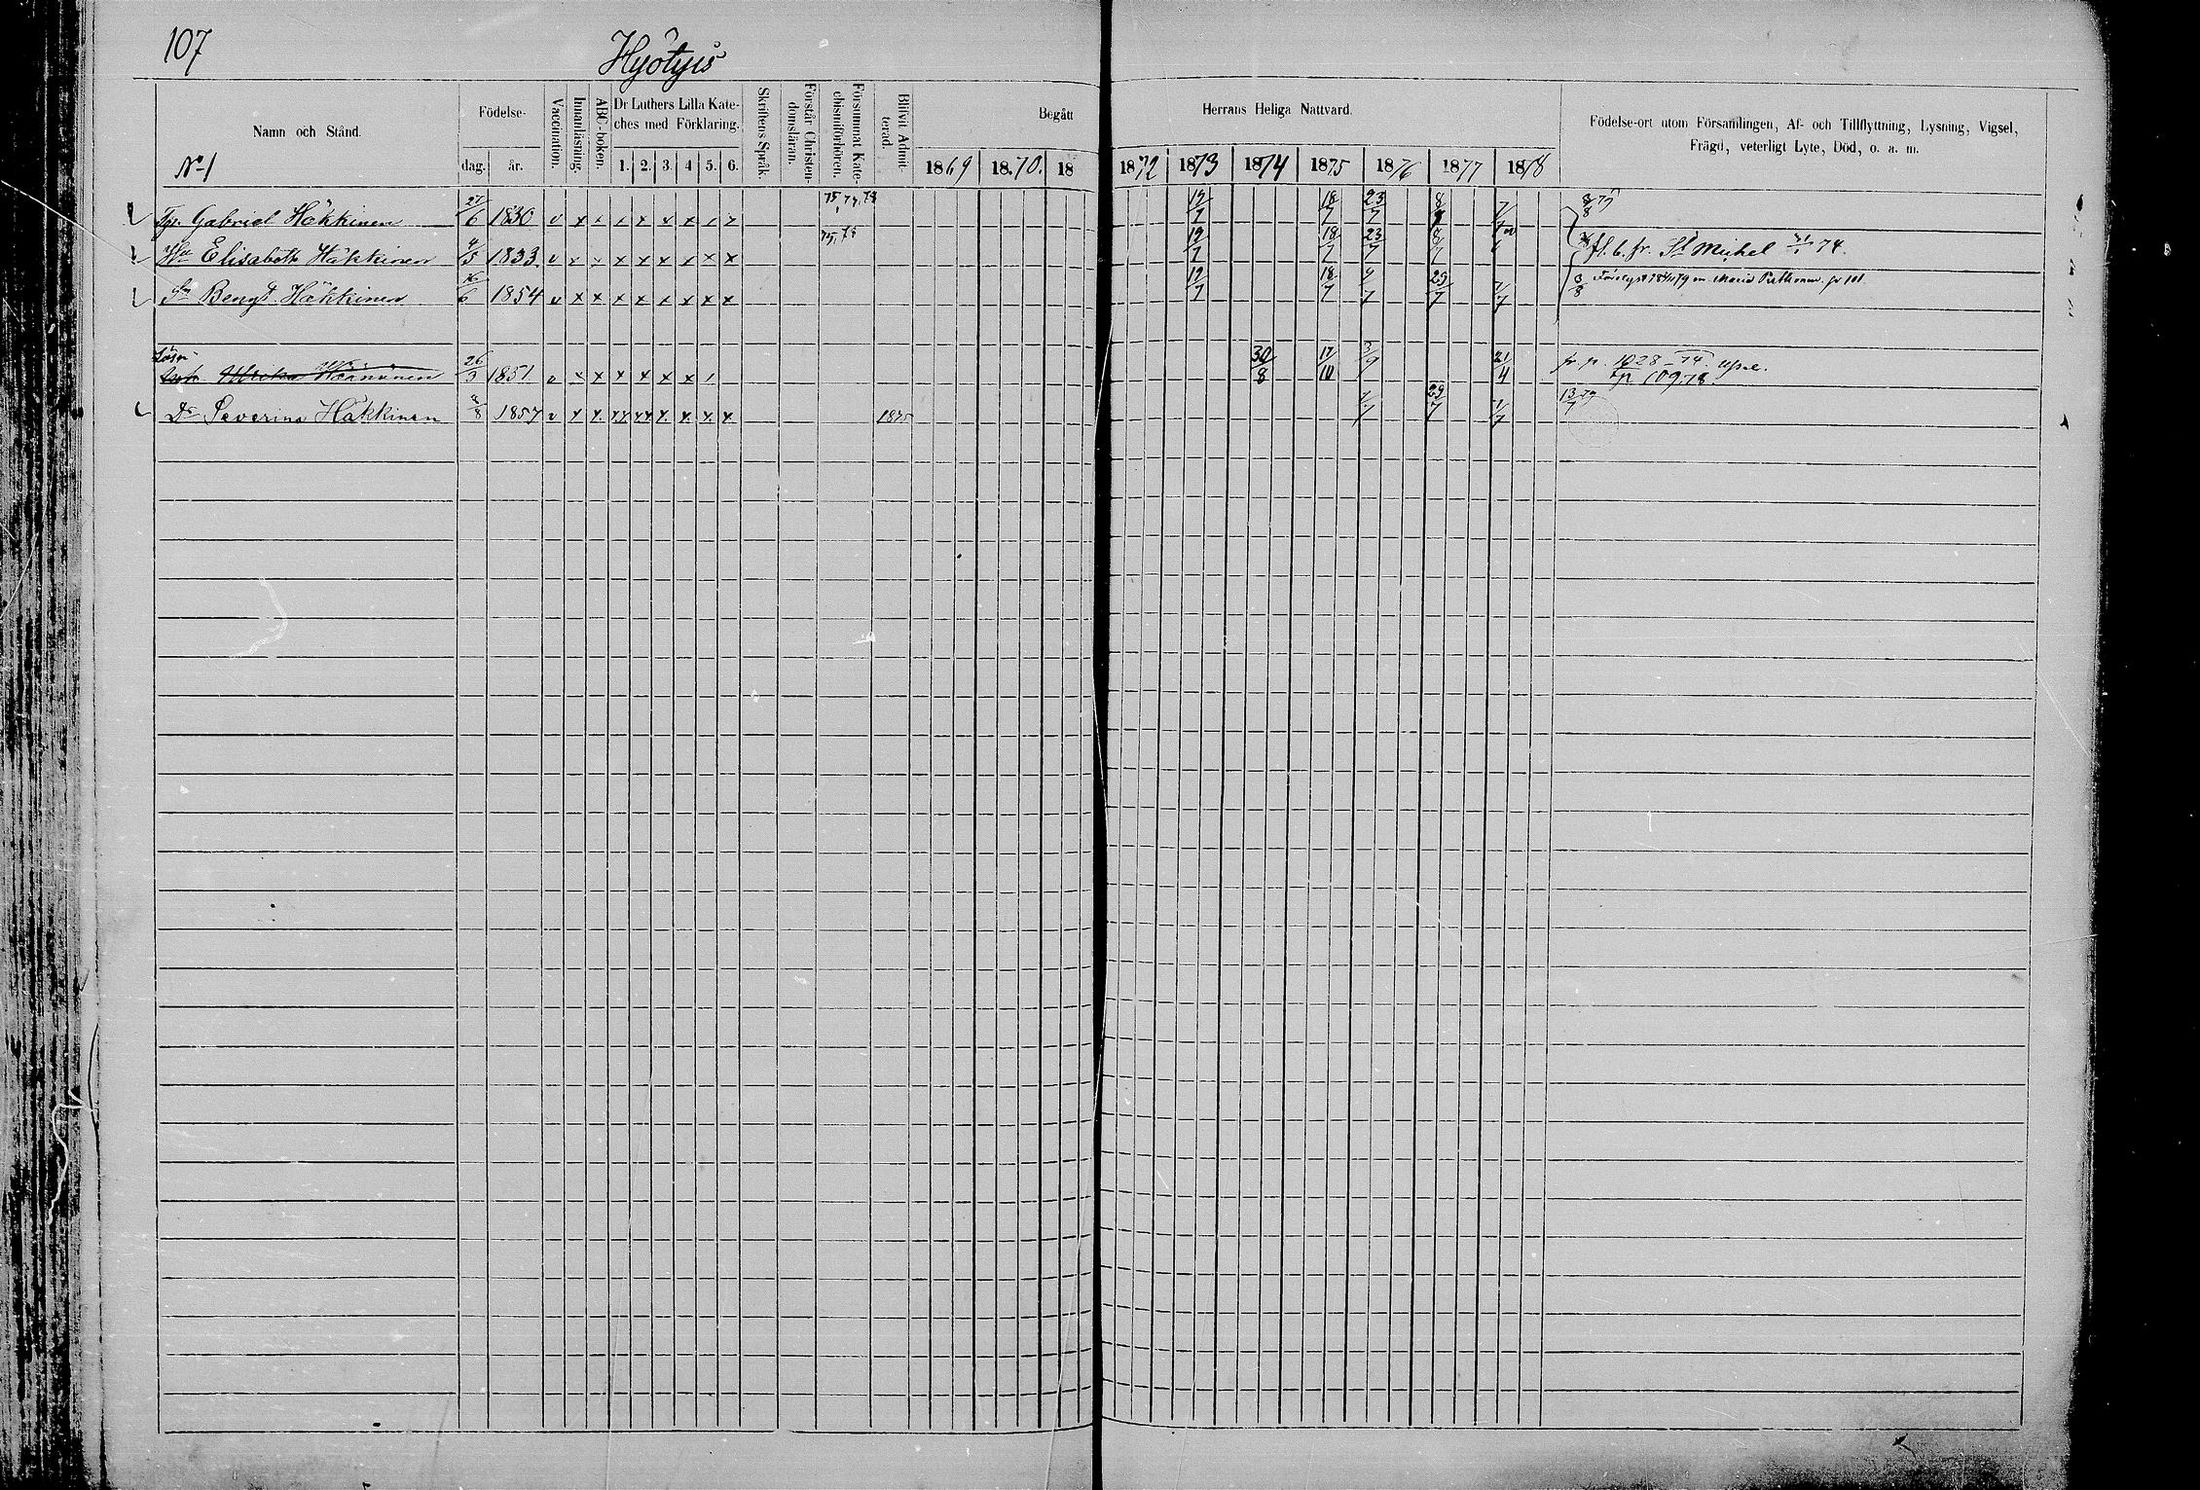 107
Hyötyis
Namn och Stånd.
Födelse-
dag.
år.
Vaccination.
Innanläsning.
ABC-boken.
Dr Luthers Lilla Kate-
ches med Förklaring.
1. 2. 3. 4 5. 6.
Skriftens Språk.
Förstår Christen-
domsläran.
Försummat Kate-
chismiförhören.
Blifvit Admit-
terad.
Begått Herrans Heliga Nattvard.
1869 1870. 18 1872 1873 1874 1875 1876 1877 1878
Födelse-ort utom Församlingen, Af- och Tillflyttning, Lysning, Vigsel,
Frägd, veterligt Lyte, Död, o. a. m.
N 1
Gabriel Häkkinen 27/6 1830 v x x x x x x x 19/7 18/7 23/7 8/7
Hu Elisabeth Häkkinen 1833 v x x x x x x x x 19/7 18/7 23/7 8/7 fl. b. fr. St Michel 74.
Sn Bengt Häkkinen 1854 v x x x x x x x x 19/7 18/7 9/7 29/7 7/7
26/3 1851 v x x x x x x 30/8 17/10 21/4
Dr Severina Häkkinen 8/8 1857 v x x x x x x x x 1875 7/7 29/7 7/7 13/7 79